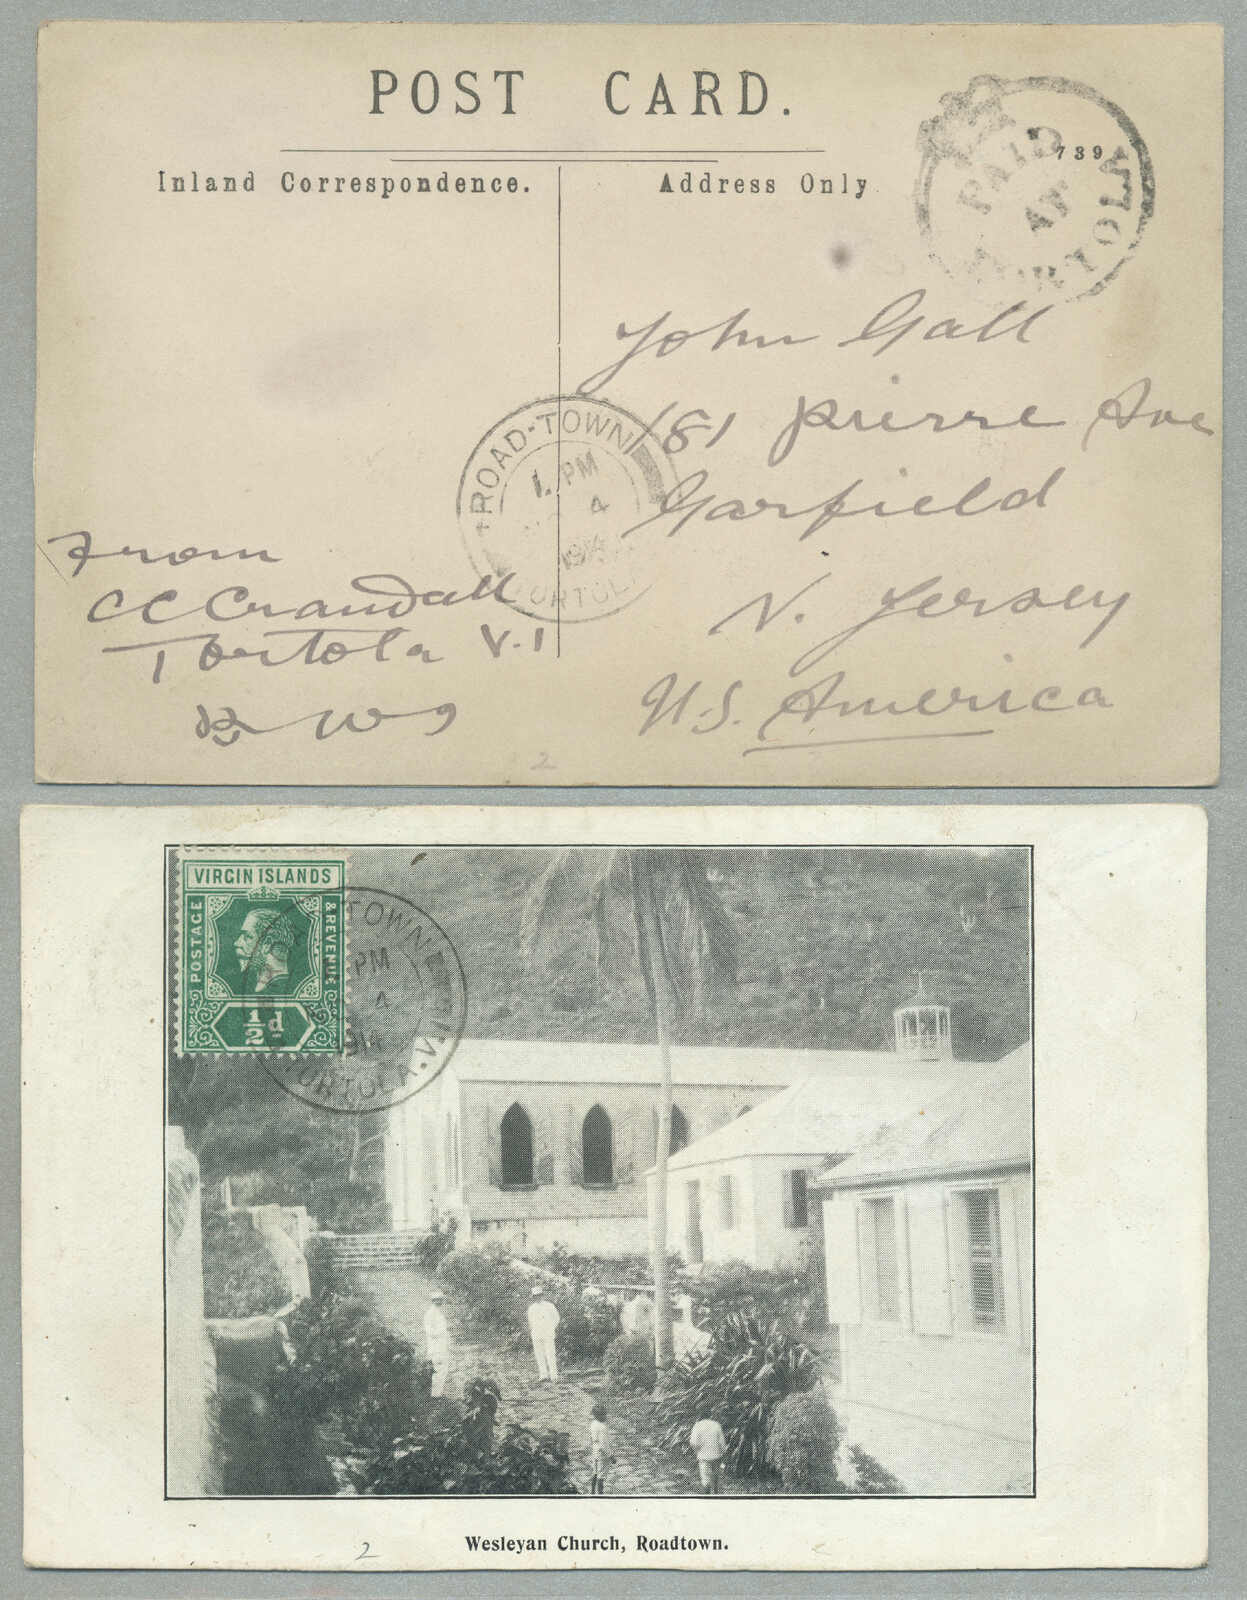 POST CARD.
Inland Correspondence.
Address Only
739
PAID
AT
TORTOLA
John Gall
181 Pierre Ave
Garfield
N. Jersey
U.S. America
ROAD-TOWN
1. PM
4
1914
TORTOLA
From
CC Crandall
Tortola V.I
B W I
2
VIRGIN ISLANDS
POSTAGE
& REVENUE
½d
TOWN
PM
4
1914
TORTOLA.V.I
Wesleyan Church, Roadtown.
2